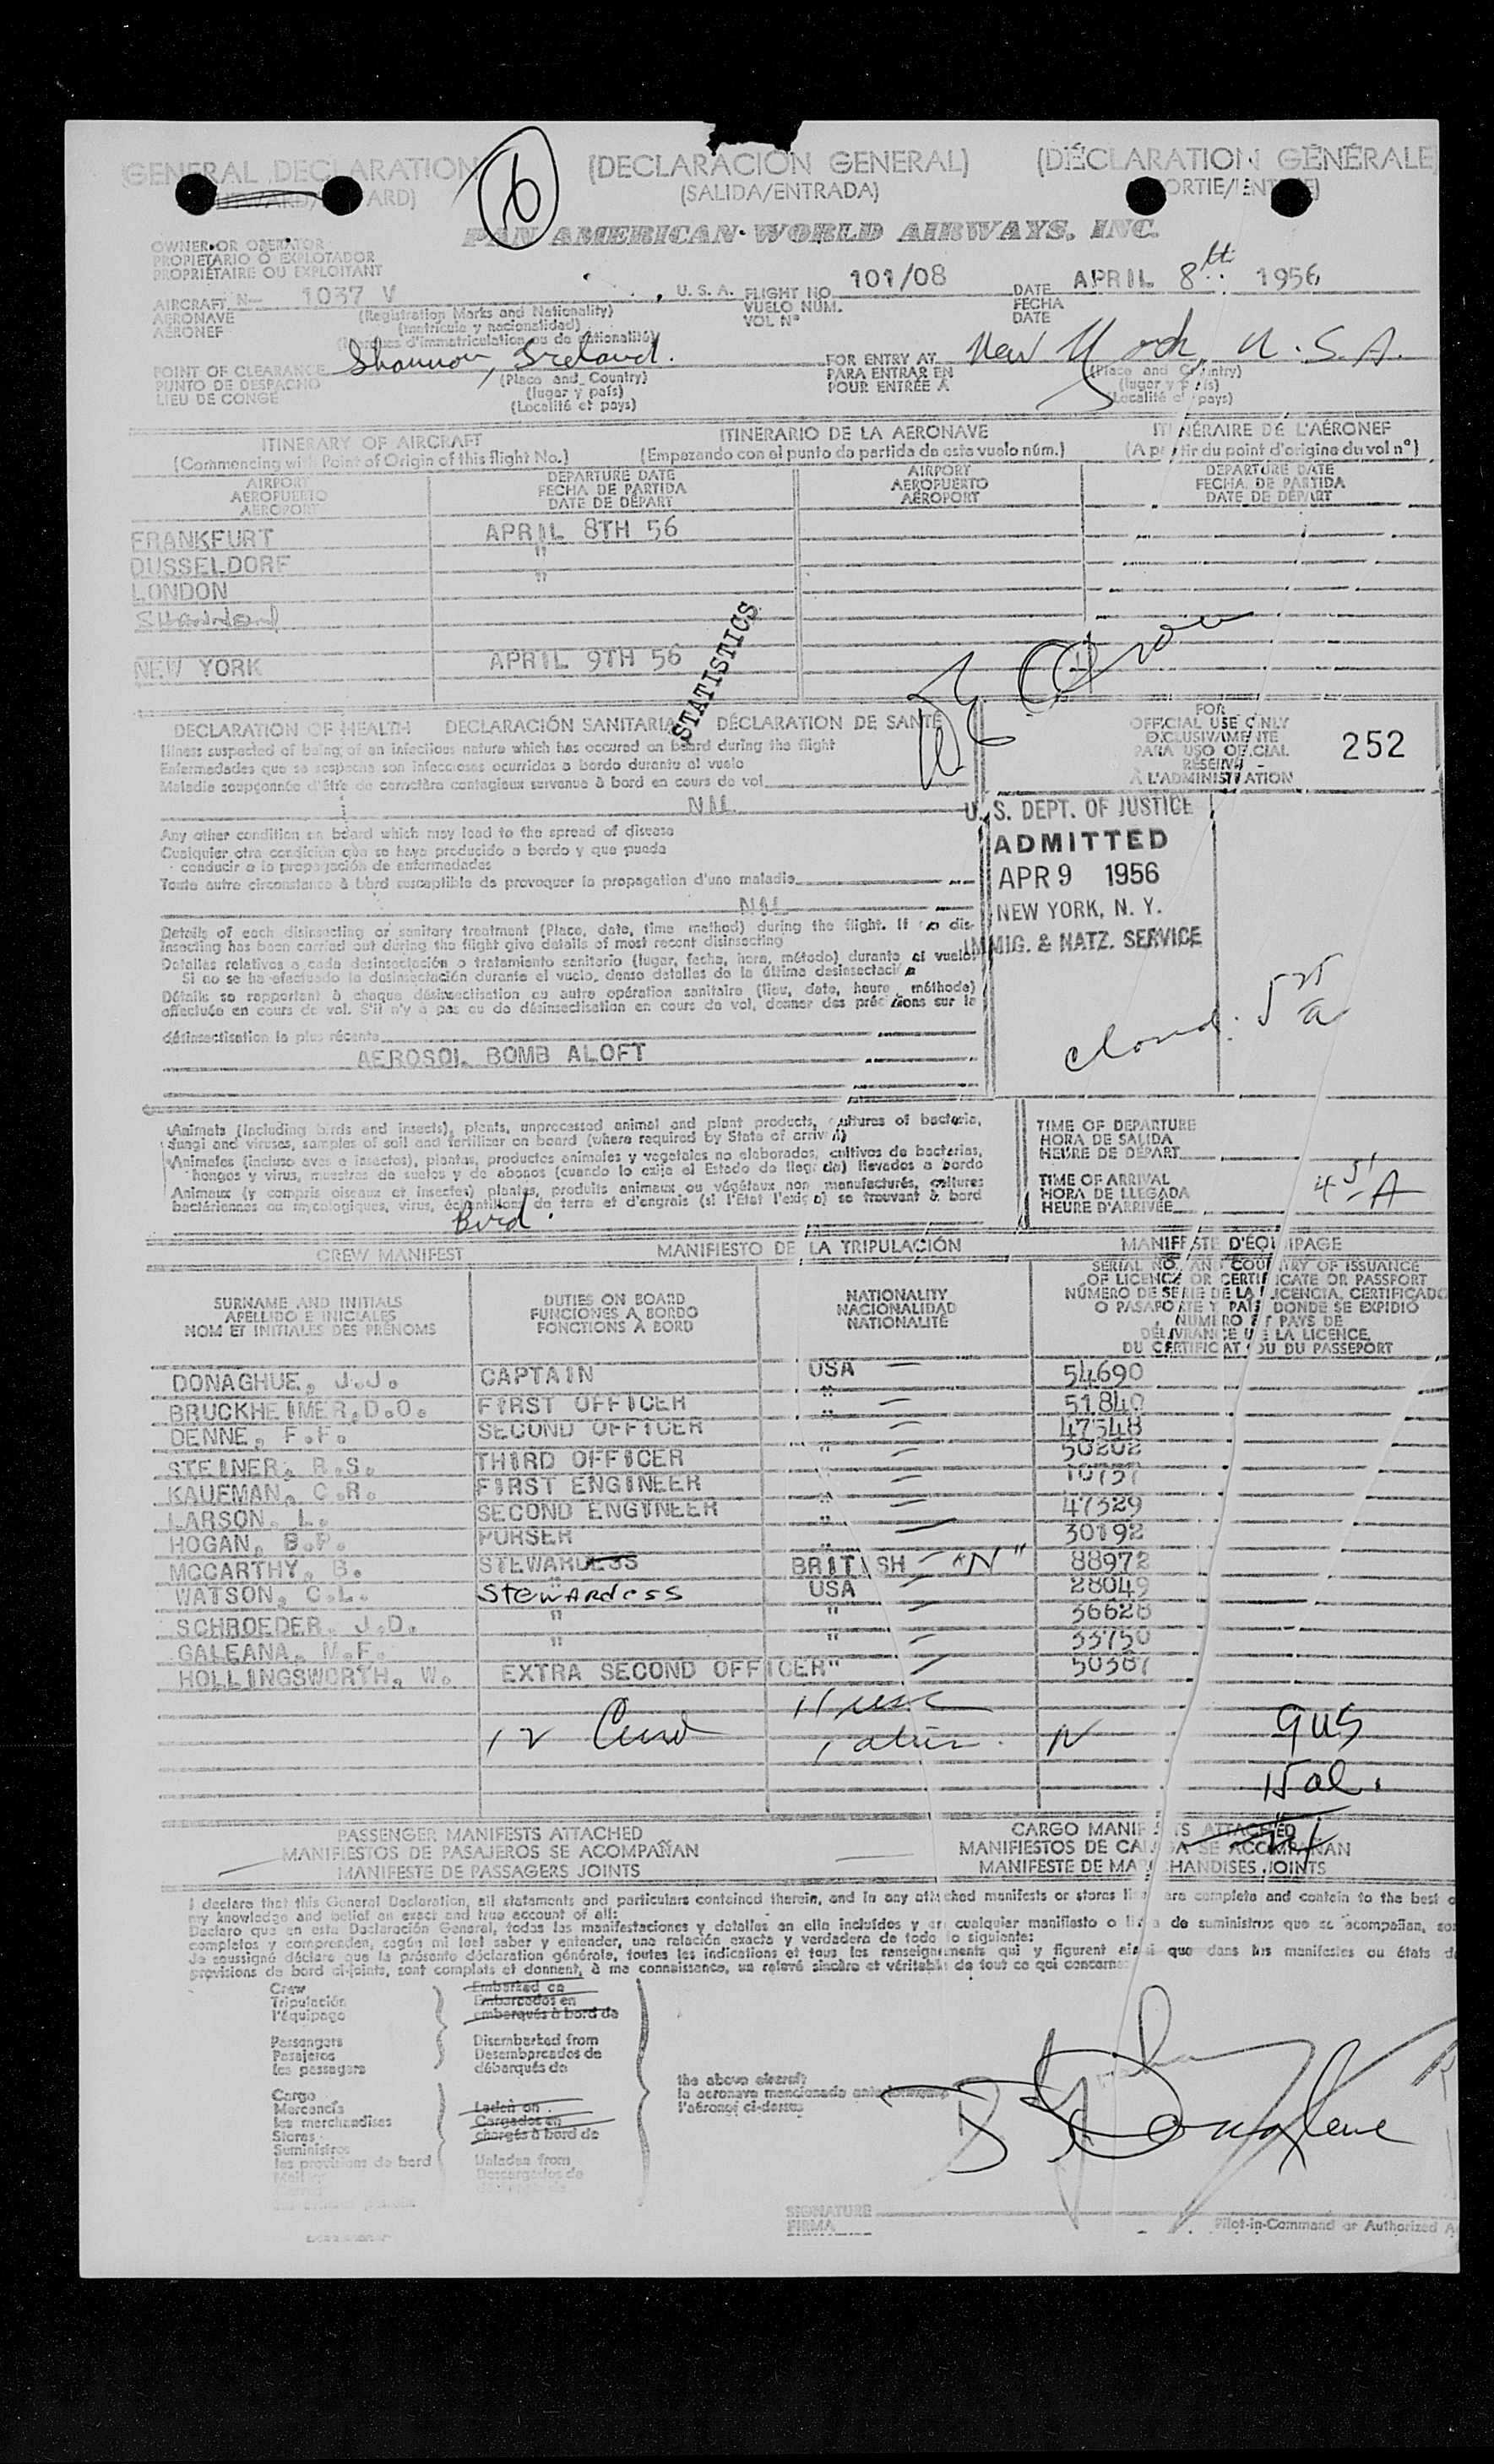 GENERAL DECLARATION (DECLARACIÓN GENERAL) (DÉCLARATION GÉNÉRALE
6
(SALIDA/ENTRADA)
PAN AMERICAN WORLD AIRWAYS, INC.
OWNER OR OPERATOR
PROPIETARIO O EXPLOTADOR
PROPRIÉTAIRE OU EXPLOITANT
AIRCRAFT N- 1037 V U. S. A. FLIGHT NO. 101/08 DATE APRIL 8th 1956
AERONAVE (Registration Marks and Nationality) VUELO NÚM. FECHA
AÉRONEF (matrícula y nacionalidad) VOL N° DATE
(Marques d'immatriculation ou de nationalité)
POINT OF CLEARANCE Shannon, Ireland. FOR ENTRY AT New York, U.S.A.
PUNTO DE DESPACHO (Place and Country) PARA ENTRAR EN (Place and Country)
LIEU DE CONGE (lugar y país) POUR ENTRÉE À (lugar y país)
(Localité et pays) (Localité et pays)
ITINERARY OF AIRCRAFT ITINERARIO DE LA AERONAVE ITINÉRAIRE DE L'AÉRONEF
(Commencing with Point of Origin of this flight No.) (Empezando con el punto de partida de este vuelo núm.) (A partir du point d'origine du vol n°)
AIRPORT DEPARTURE DATE AIRPORT DEPARTURE DATE
AEROPUERTO FECHA DE PARTIDA AEROPUERTO FECHA DE PARTIDA
AÉROPORT DATE DE DÉPART AÉROPORT DATE DE DÉPART
FRANKFURT APRIL 8TH 56
DUSSELDORF "
LONDON "
SHANNON
NEW YORK APRIL 9TH 56
STATISTICS
DECLARATION OF HEALTH DECLARACIÓN SANITARIA DÉCLARATION DE SANTÉ
Illness suspected of being of an infectious nature which has occured on board during the flight
Enfermedades que se sospecha son infecciosas ocurridas a bordo durante el vuelo
Maladie soupçonnée d'être de caractère contagieux survenue à bord en cours de vol
NIL
Any other condition on board which may lead to the spread of disease
Cualquier otra condición que se haya producido a bordo y que pueda
conducir a la propagación de enfermedades
Toute autre circonstance à bord susceptible de provoquer la propagation d'une maladie
NIL
Details of each disinsecting or sanitary treatment (Place, date, time method) during the flight. If no dis-
insecting has been carried out during the flight give details of most recent disinsecting
Detalles relativos a cada desinsectación o tratamiento sanitario (lugar, fecha, hora, método) durante el vuelo.
Si no se ha efectuado la desinsectación durante el vuelo, dense detalles de la última desinsectación
Détails se rapportant à chaque désinsectisation ou autre opération sanitaire (lieu, date, heure, méthode)
effectuée en cours de vol. S'il n'y a pas eu de désinsectisation en cours de vol, donner des précisions sur la
désinsectisation la plus récente
AEROSOL BOMB ALOFT
FOR
OFFICIAL USE ONLY
EXCLUSIVAMENTE
PARA USO OFICIAL
RÉSERVÉ
À L'ADMINISTRATION
252
U. S. DEPT. OF JUSTICE
ADMITTED
APR 9 1956
NEW YORK, N. Y.
IMMIG. & NATZ. SERVICE
Animals (including birds and insects), plants, unprocessed animal and plant products, cultures of bacteria,
fungi and viruses, samples of soil and fertilizer on board (where required by State of arrival)
Animales (incluso aves e insectos), plantas, productos animales y vegetales no elaborados, cultivos de bacterias,
hongos y virus, muestras de suelos y de abonos (cuando lo exija el Estado de llegada) llevados a bordo
Animaux (y compris oiseaux et insectes) plantes, produits animaux ou végétaux non manufacturés, cultures
bactériennes ou mycologiques, virus, échantillons de terre et d'engrais (si l'État l'exige) se trouvant à bord
Bird.
TIME OF DEPARTURE
HORA DE SALIDA
HEURE DE DÉPART
TIME OF ARRIVAL
HORA DE LLEGADA
HEURE D'ARRIVÉE
CREW MANIFEST MANIFIESTO DE LA TRIPULACIÓN MANIFESTE D'ÉQUIPAGE
SURNAME AND INITIALS
APELLIDO E INICIALES
NOM ET INITIALES DES PRÉNOMS
DUTIES ON BOARD
FUNCIONES A BORDO
FONCTIONS À BORD
NATIONALITY
NACIONALIDAD
NATIONALITÉ
SERIAL NO. AND COUNTRY OF ISSUANCE
OF LICENCE OR CERTIFICATE OR PASSPORT
NÚMERO DE SERIE DE LA LICENCIA, CERTIFICADO
O PASAPORTE Y PAÍS DONDE SE EXPIDIÓ
NUMÉRO ET PAYS DE
DÉLIVRANCE DE LA LICENCE,
DU CERTIFICAT OU DU PASSEPORT
DONAGHUE, J.J. CAPTAIN USA 54690
BRUCKHEIMER, D.O. FIRST OFFICER " 51840
DENNE, F.F. SECOND OFFICER " 47548
STEINER, R.S. THIRD OFFICER " 50202
KAUFMAN, C.R. FIRST ENGINEER " 10757
LARSON, L. SECOND ENGINEER " 47329
HOGAN, B.P. PURSER " 30192
MCCARTHY, B. STEWARDESS BRITISH "N" 88972
WATSON, C.L. STEWARDESS USA 28049
SCHROEDER, J.D. " " 36628
GALEANA, M.F. " " 33750
HOLLINGSWORTH, W. EXTRA SECOND OFFICER " 50387
12 Crew 11 usc
1 alien N
9 US
15 al.
PASSENGER MANIFESTS ATTACHED CARGO MANIFESTS ATTACHED
MANIFIESTOS DE PASAJEROS SE ACOMPAÑAN MANIFIESTOS DE CARGA SE ACOMPAÑAN
MANIFESTE DE PASSAGERS JOINTS MANIFESTE DE MARCHANDISES JOINTS
I declare that this General Declaration, all statements and particulars contained therein, and in any attached manifests or stores list are complete and contain to the best o
my knowledge and belief an exact and true account of all:
Declaro que en esta Declaración General, todas las manifestaciones y detalles en ella incluidos y en cualquier manifiesto o lista de suministros que se acompañan, son
completos y comprenden, según mi leal saber y entender, una relación exacta y verdadera de todo lo siguiente:
Je soussigné déclare que la présente déclaration générale, toutes les indications et tous les renseignements qui y figurent ainsi que dans les manifestes ou états d
provisions de bord ci-joints, sont complets et donnent, à ma connaissance, un relevé sincère et véritable de tout ce qui concerne:
Crew Embarked on
Tripulación Embarcados en
l'équipage embarqués à bord de
Passengers Disembarked from
Pasajeros Desembarcados de
les passagers débarqués de
the above aircraft
la aeronave mencionada anteriormente
l'aéronef ci-dessus
Cargo
Mercancía Laden on
les marchandises Cargados en
Stores chargés à bord de
Suministros
les provisions de bord Unladen from
Descargados de
SIGNATURE
FIRMA
Pilot-in-Command or Authorized A